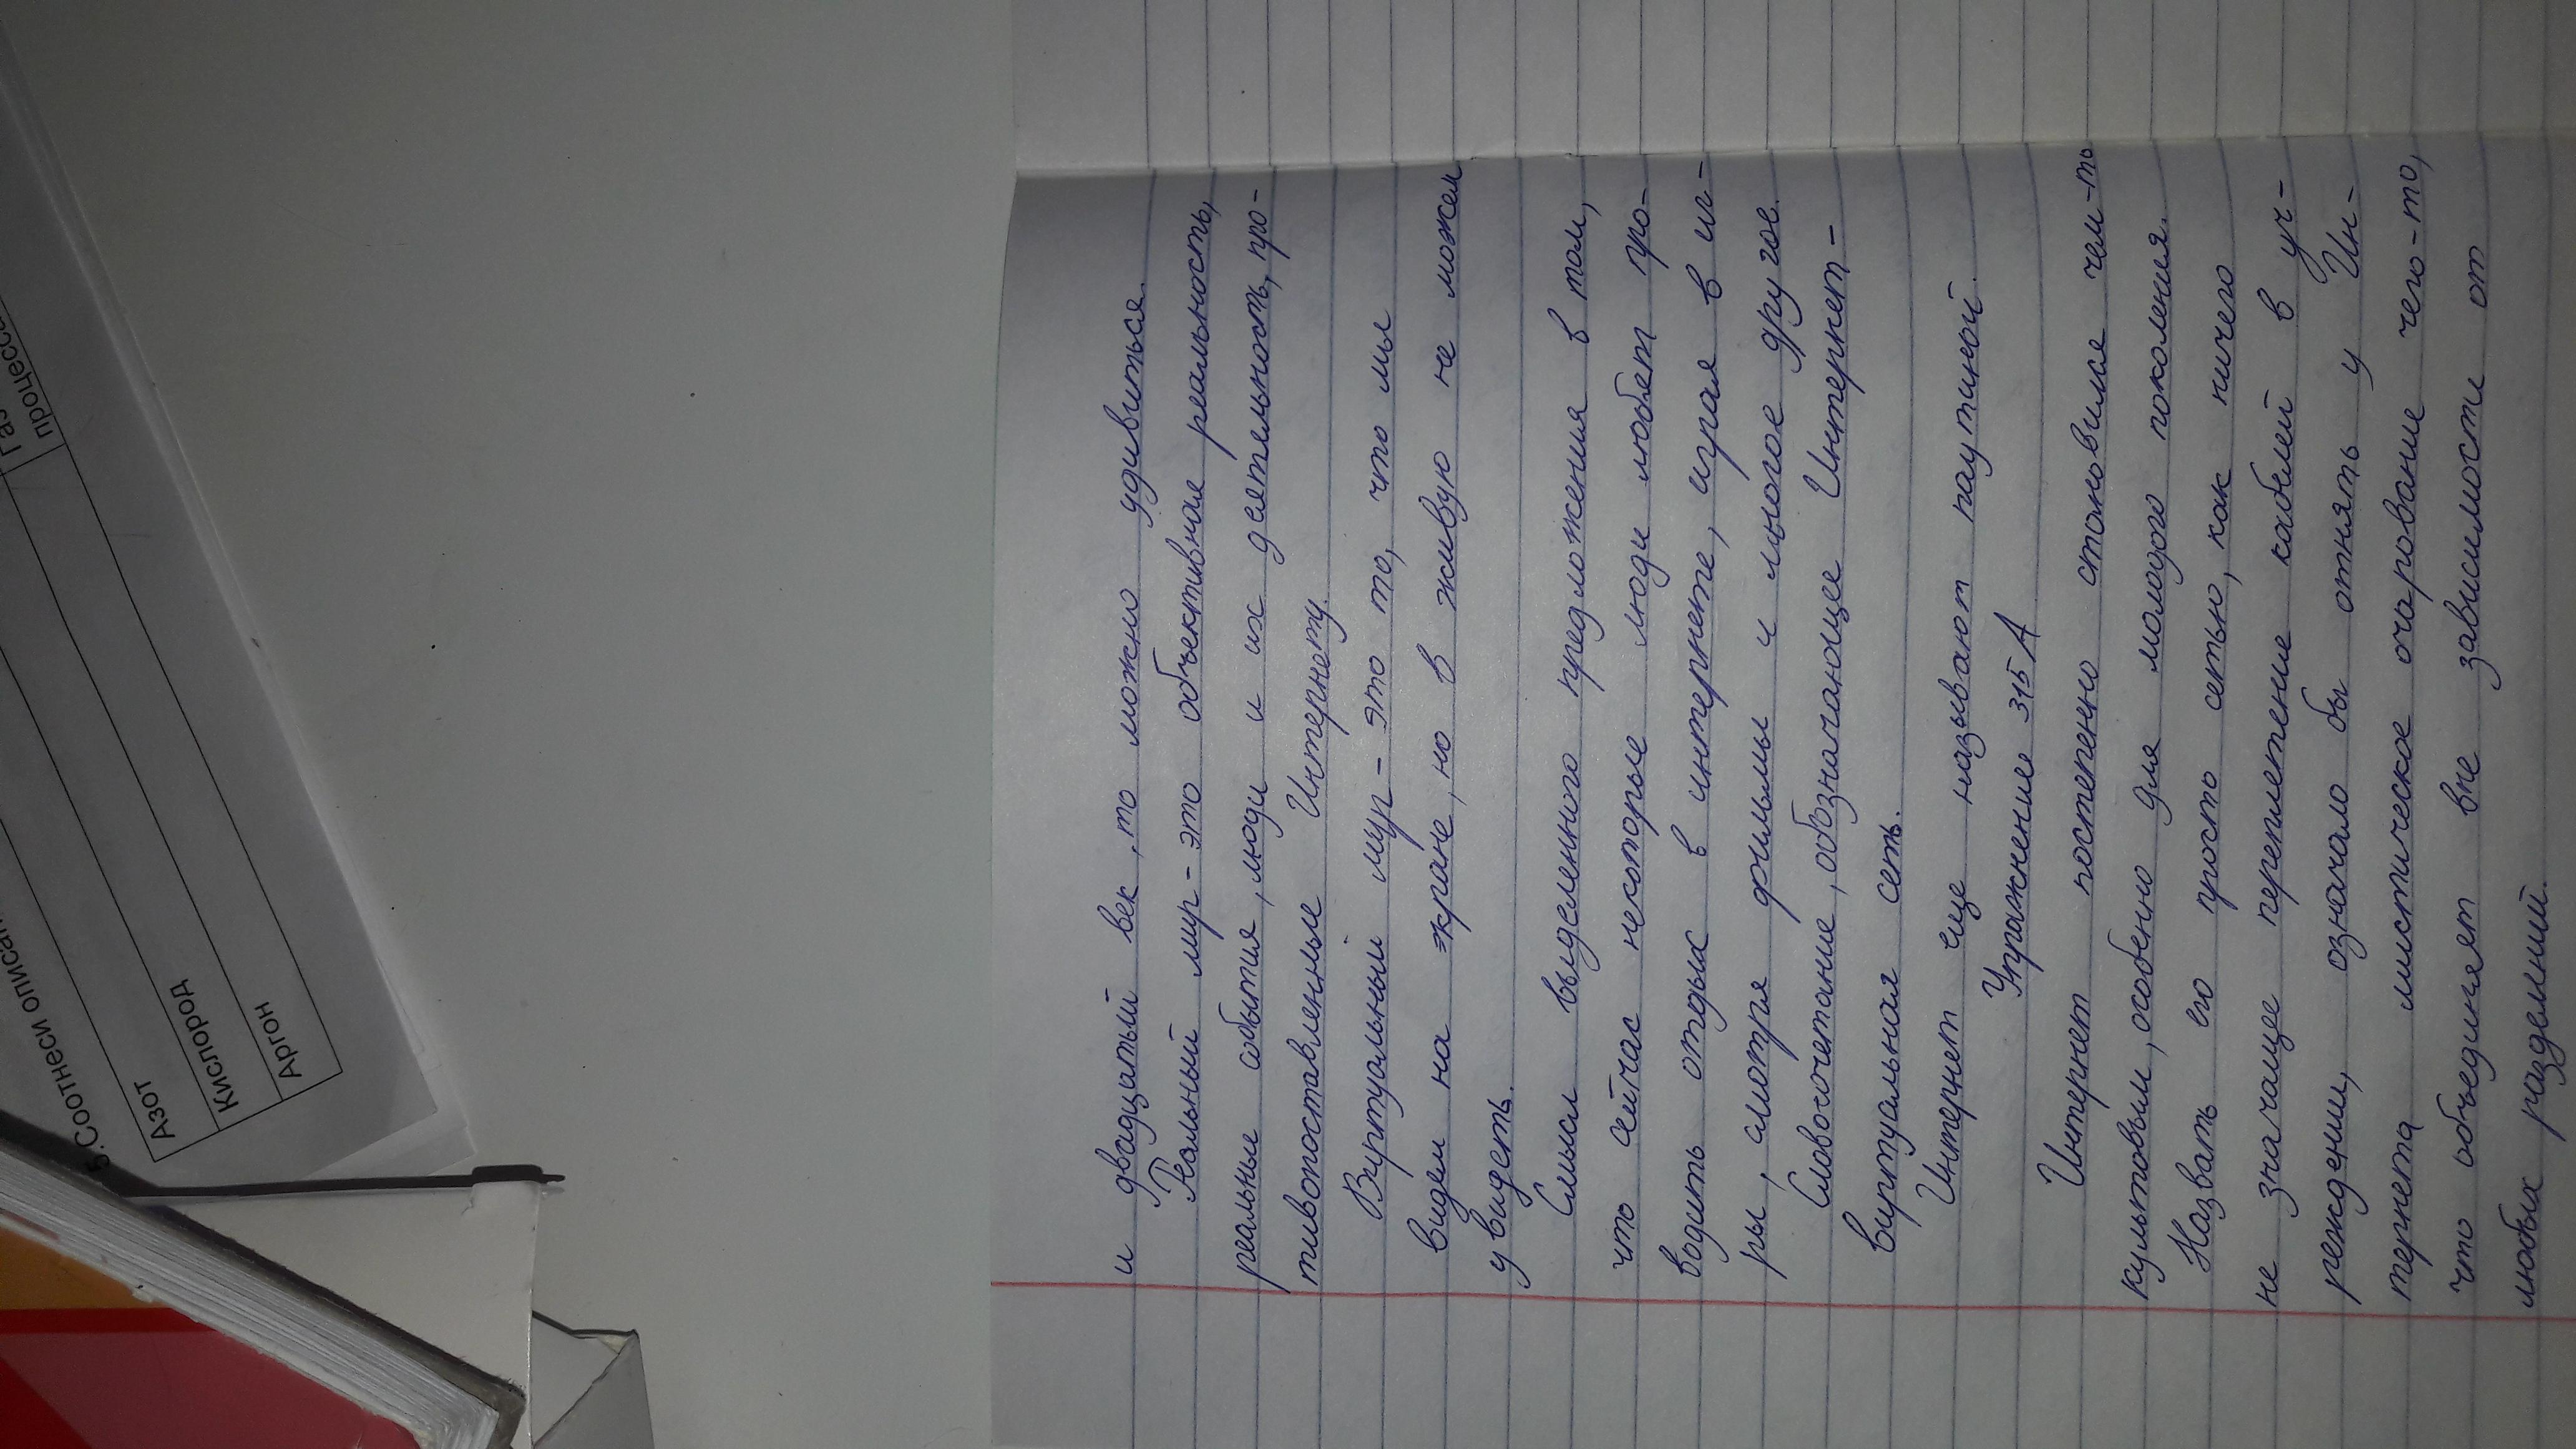 5.Соотнеси описан
Азот
Кислород
Аргон
Газ
процесса
и двадцатый век, то можно удивиться.
Реальный мир - это объективная реальность,
реальные события, люди и их деятельность, про-
тивопоставленные Интернету.
Виртуальный мир - это то, что мы
видем на экране, но в живую не можем
увидеть.
Смысл выделенного предложения в том,
что сейчас некоторые люди любят про-
водить отдых в интернете, играя в иг-
ры, смотря фильмы и многое другое.
Словосочетание, обозначающее Интернет -
виртуальная сеть.
Интернет еще называют паутиной.
Упражнение 315 А
Интернет постепенно становился чем-то
культовым, особенно для молодого поколения.
Назвать его просто сетью, как ничего
не значащее переплетение кабелей в уч-
реждении, означало бы отнять у Ин-
тернета мистическое очарование чего-то,
что объединяет вне зависимости от
любых разделений.